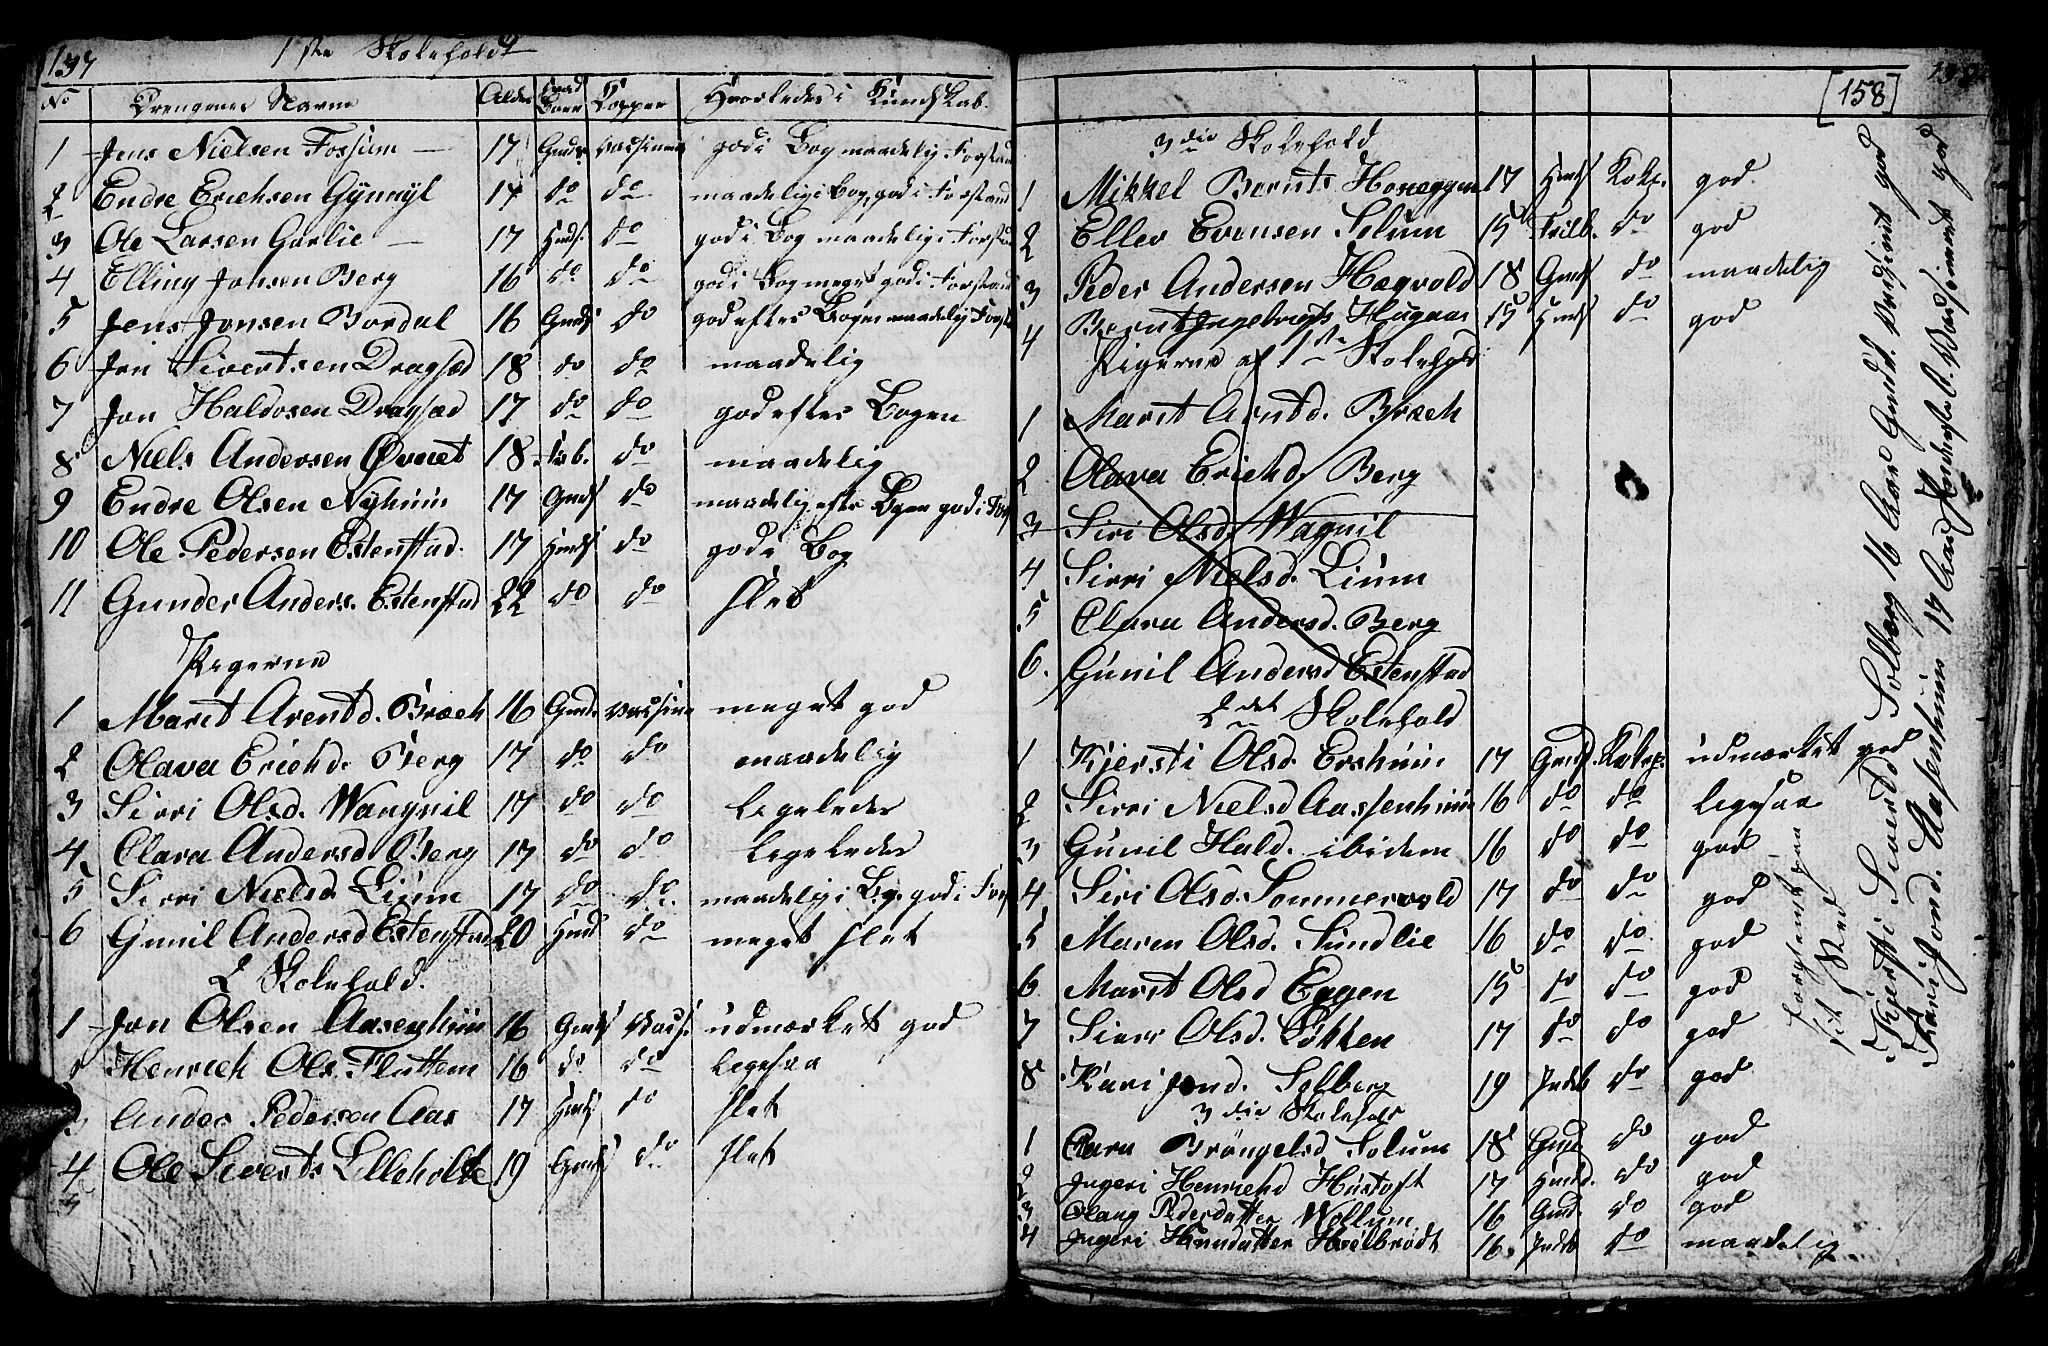 137
1ste Skolehold
No Drengenes Navne Alder Hvad Børn Kopper Hvorledes i Kundskab.
1 Jens Nielsen Fossum 17 Gmds vaccineret god i Bog maadelig i Forstand
2 Endre Erichsen Gynnyl 17 do do maadelig i Bog, god i Forstand
3 Ole Larsen Garlie 17 Hmds. do god i Bog maadelig i Forstand
4 Elling Jonsen Berg 16 do do god i Bog meget god i Forstand
5 Jens Jonsen Bordal 16 Gmds do god efter Bogen maadelig Forst
6 Jon Sivertsen Dragsæd 18 do do maadelig
7 Jon Haldosen Dragsæd 17 do do god efter Bogen
8 Niels Andersen Øvriet 18 do maadelig
9 Endre Olsen Nyhuus 17 Gmds do maadelig efter Bogen god i Forst
10 Ole Pedersen Estenstad. 17 Hmds do god i Bog
11 Gunder Anders. Estenstad 22 do do slet
Pigerne
1 Maret Arentd. Bræch 16 Gmds. vaccine meget god
2 Olava Erichd. Berg 17 do do maadelig
3 Sirri Olsd. Wangvil 17 do do Ligeledes
4. Clara Andersd Berg 17 do do Ligeledes
5 Sirri Nielsd Lium 17 do do. maadelig i Bog. god i Forst
6 Gunil Andersd Estenstad 20 Hmds do meget slet
2 Skolehold.
1 Jon Olsen Aasenhuus 16 Gmds Vacci. udmærket god
2 Henrich Ols. Fluttem 16 do do Ligesaa
3 Anders Pedersen Aas 17 Hmds do slet
4 Ole Siverts Lilleholte 19 Gmds do slet
5
[158]
3die Skolehold
1 Mikkel Bernts Honeggen 17 Hmds Kokp. god
2 Ellev Evensen Solum 15 do god
3 Peder Andersen Hægvold 18 Gmds do maadelig
4 Bernt Ingebrigts Hugaas 15 Hmds do god
Pigerne af 1ste Skolehold
1 Maret Arntd. Bræch
2 Olava Erichd. Berg
3 Siri Olsd. Wagnil
4 Sirri Nielsd. Lium
5 Clara Andersd. Berg
6. Gunil Andersd Estenstad
2det Skolehold
1 Kjersti Olsd. Ershuus 17 Gmds. Kokp. udmærket god
2 Sirri Nielsd Aassenhuus 16 do do Ligesaa
3 Gunil Hald. ibidem 16 do do god
4 Siri Olsd. Sommervold 17 do do god
5 Maren Olsd. Sundlie 16 do do god
6 Maret Olsd Eggen 15 do do god
7 Sirri Olsd. Løkken 17 do do god
8 Kari Jond. Solberg 19 Inds do god
3die Skolehold
1 Clara Brøngelsd Solum 18 Gmd do god
2 Ingeri Henrichd Hustoft 17 Hmd. do god
3 Olaug Pedersdatter Wollum 16 Gmd. do god
4 Ingeri Hansdatter Hvelbrodt 16. Inds do maadelig
forglemt paa
sit Sted
Kjersti Siverd. Solberg 16 Aar Gmds. god
Kari Jond. Aasenhuus 17 Aar Vaccineret god